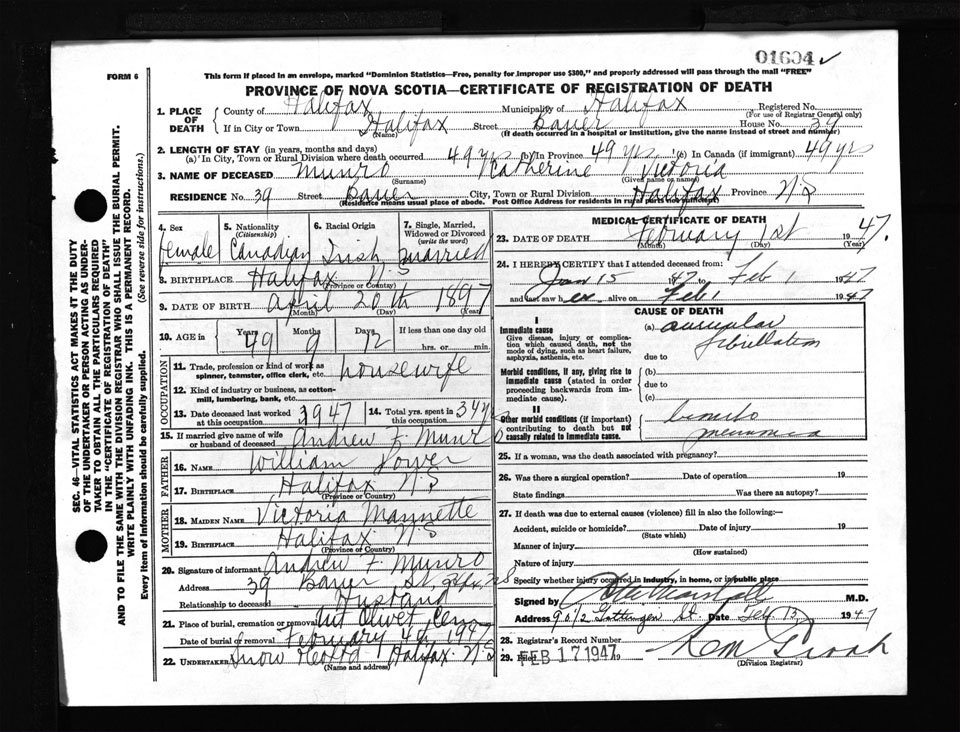 01604 ✓
FORM 6
This form if placed in an envelope, marked "Dominion Statistics—Free, penalty for improper use $300," and properly addressed will pass through the mail "FREE"
PROVINCE OF NOVA SCOTIA—CERTIFICATE OF REGISTRATION OF DEATH
1. PLACE OF DEATH County of Halifax Municipality of Halifax Registered No.
(For use of Registrar General only)
If in City or Town Halifax Street Bauer House No. 39
(Name) (If death occurred in a hospital or institution, give the name instead of street and number)
2. LENGTH OF STAY (in years, months and days)
(a) In City, Town or Rural Division where death occurred 49 yrs (b) In Province 49 yrs (c) In Canada (if immigrant) 49 yrs
3. NAME OF DECEASED Munro Catherine Victoria
(Surname) (Given name or names)
RESIDENCE No. 39 Street Bauer City, Town or Rural Division Halifax Province N.S
(Residence means usual place of abode. Post Office Address for residents in rural parts not sufficient)
4. Sex female
5. Nationality (Citizenship) Canadian
6. Racial Origin Irish
7. Single, Married, Widowed or Divorced (write the word) married
8. BIRTHPLACE Halifax N.S
(Province or Country)
9. DATE OF BIRTH April 20th 1897
(Month) (Day) (Year)
10. AGE in Years 49 Months 9 Days 12 If less than one day old
hrs. or min.
OCCUPATION
11. Trade, profession or kind of work as spinner, teamster, office clerk, etc. housewife
12. Kind of industry or business, as cotton-mill, lumbering, bank, etc.
13. Date deceased last worked at this occupation 1947
14. Total yrs. spent in this occupation 34 yrs
15. If married give name of wife or husband of deceased Andrew F. Munro
FATHER
16. NAME William Power
17. BIRTHPLACE Halifax N.S
(Province or Country)
MOTHER
18. MAIDEN NAME Victoria Maynette
19. BIRTHPLACE Halifax N.S
(Province or Country)
20. Signature of informant Andrew F. Munro
Address 39 Bauer St.
Relationship to deceased Husband
21. Place of burial, cremation or removal Mt Olivet Cem
Date of burial or removal February 4th, 1947
22. UNDERTAKER Snow Halifax N.S
(Name and address)
MEDICAL CERTIFICATE OF DEATH
23. DATE OF DEATH February 1st 1947.
(Month) (Day) (Year)
24. I HEREBY CERTIFY that I attended deceased from:
Jan 15 1947 to Feb 1 1947
and last saw her alive on Feb 1 1947
CAUSE OF DEATH
I
Immediate cause
Give disease, injury or complication which caused death, not the mode of dying, such as heart failure, asphyxia, asthenia, etc.
(a) auricular fibrillation
due to
Morbid conditions, if any, giving rise to immediate cause (stated in order proceeding backwards from immediate cause).
(b)
due to
(c)
II
Other morbid conditions (if important) contributing to death but not causally related to immediate cause.
broncho pneumonia
25. If a woman, was the death associated with pregnancy?
26. Was there a surgical operation? Date of operation 19
State findings Was there an autopsy?
27. If death was due to external causes (violence) fill in also the following:—
Accident, suicide or homicide? Date of injury 19
(State which)
Manner of injury
(How sustained)
Nature of injury
Specify whether injury occurred in industry, in home, or in public place
Signed by Marshall M.D.
Address 90 1/2 Gottingen St. Date Feb. 13 1947
28. Registrar's Record Number
29. Filed FEB 17 1947 19
(Division Registrar)
SEC. 46—VITAL STATISTICS ACT MAKES IT THE DUTY OF THE UNDERTAKER OR PERSON ACTING AS UNDERTAKER TO OBTAIN ALL THE PARTICULARS REQUIRED IN THE "CERTIFICATE OF REGISTRATION OF DEATH" AND TO FILE THE SAME WITH THE DIVISION REGISTRAR WHO SHALL ISSUE THE BURIAL PERMIT.
WRITE PLAINLY WITH UNFADING INK. THIS IS A PERMANENT RECORD.
Every item of information should be carefully supplied. (See reverse side for instructions.)